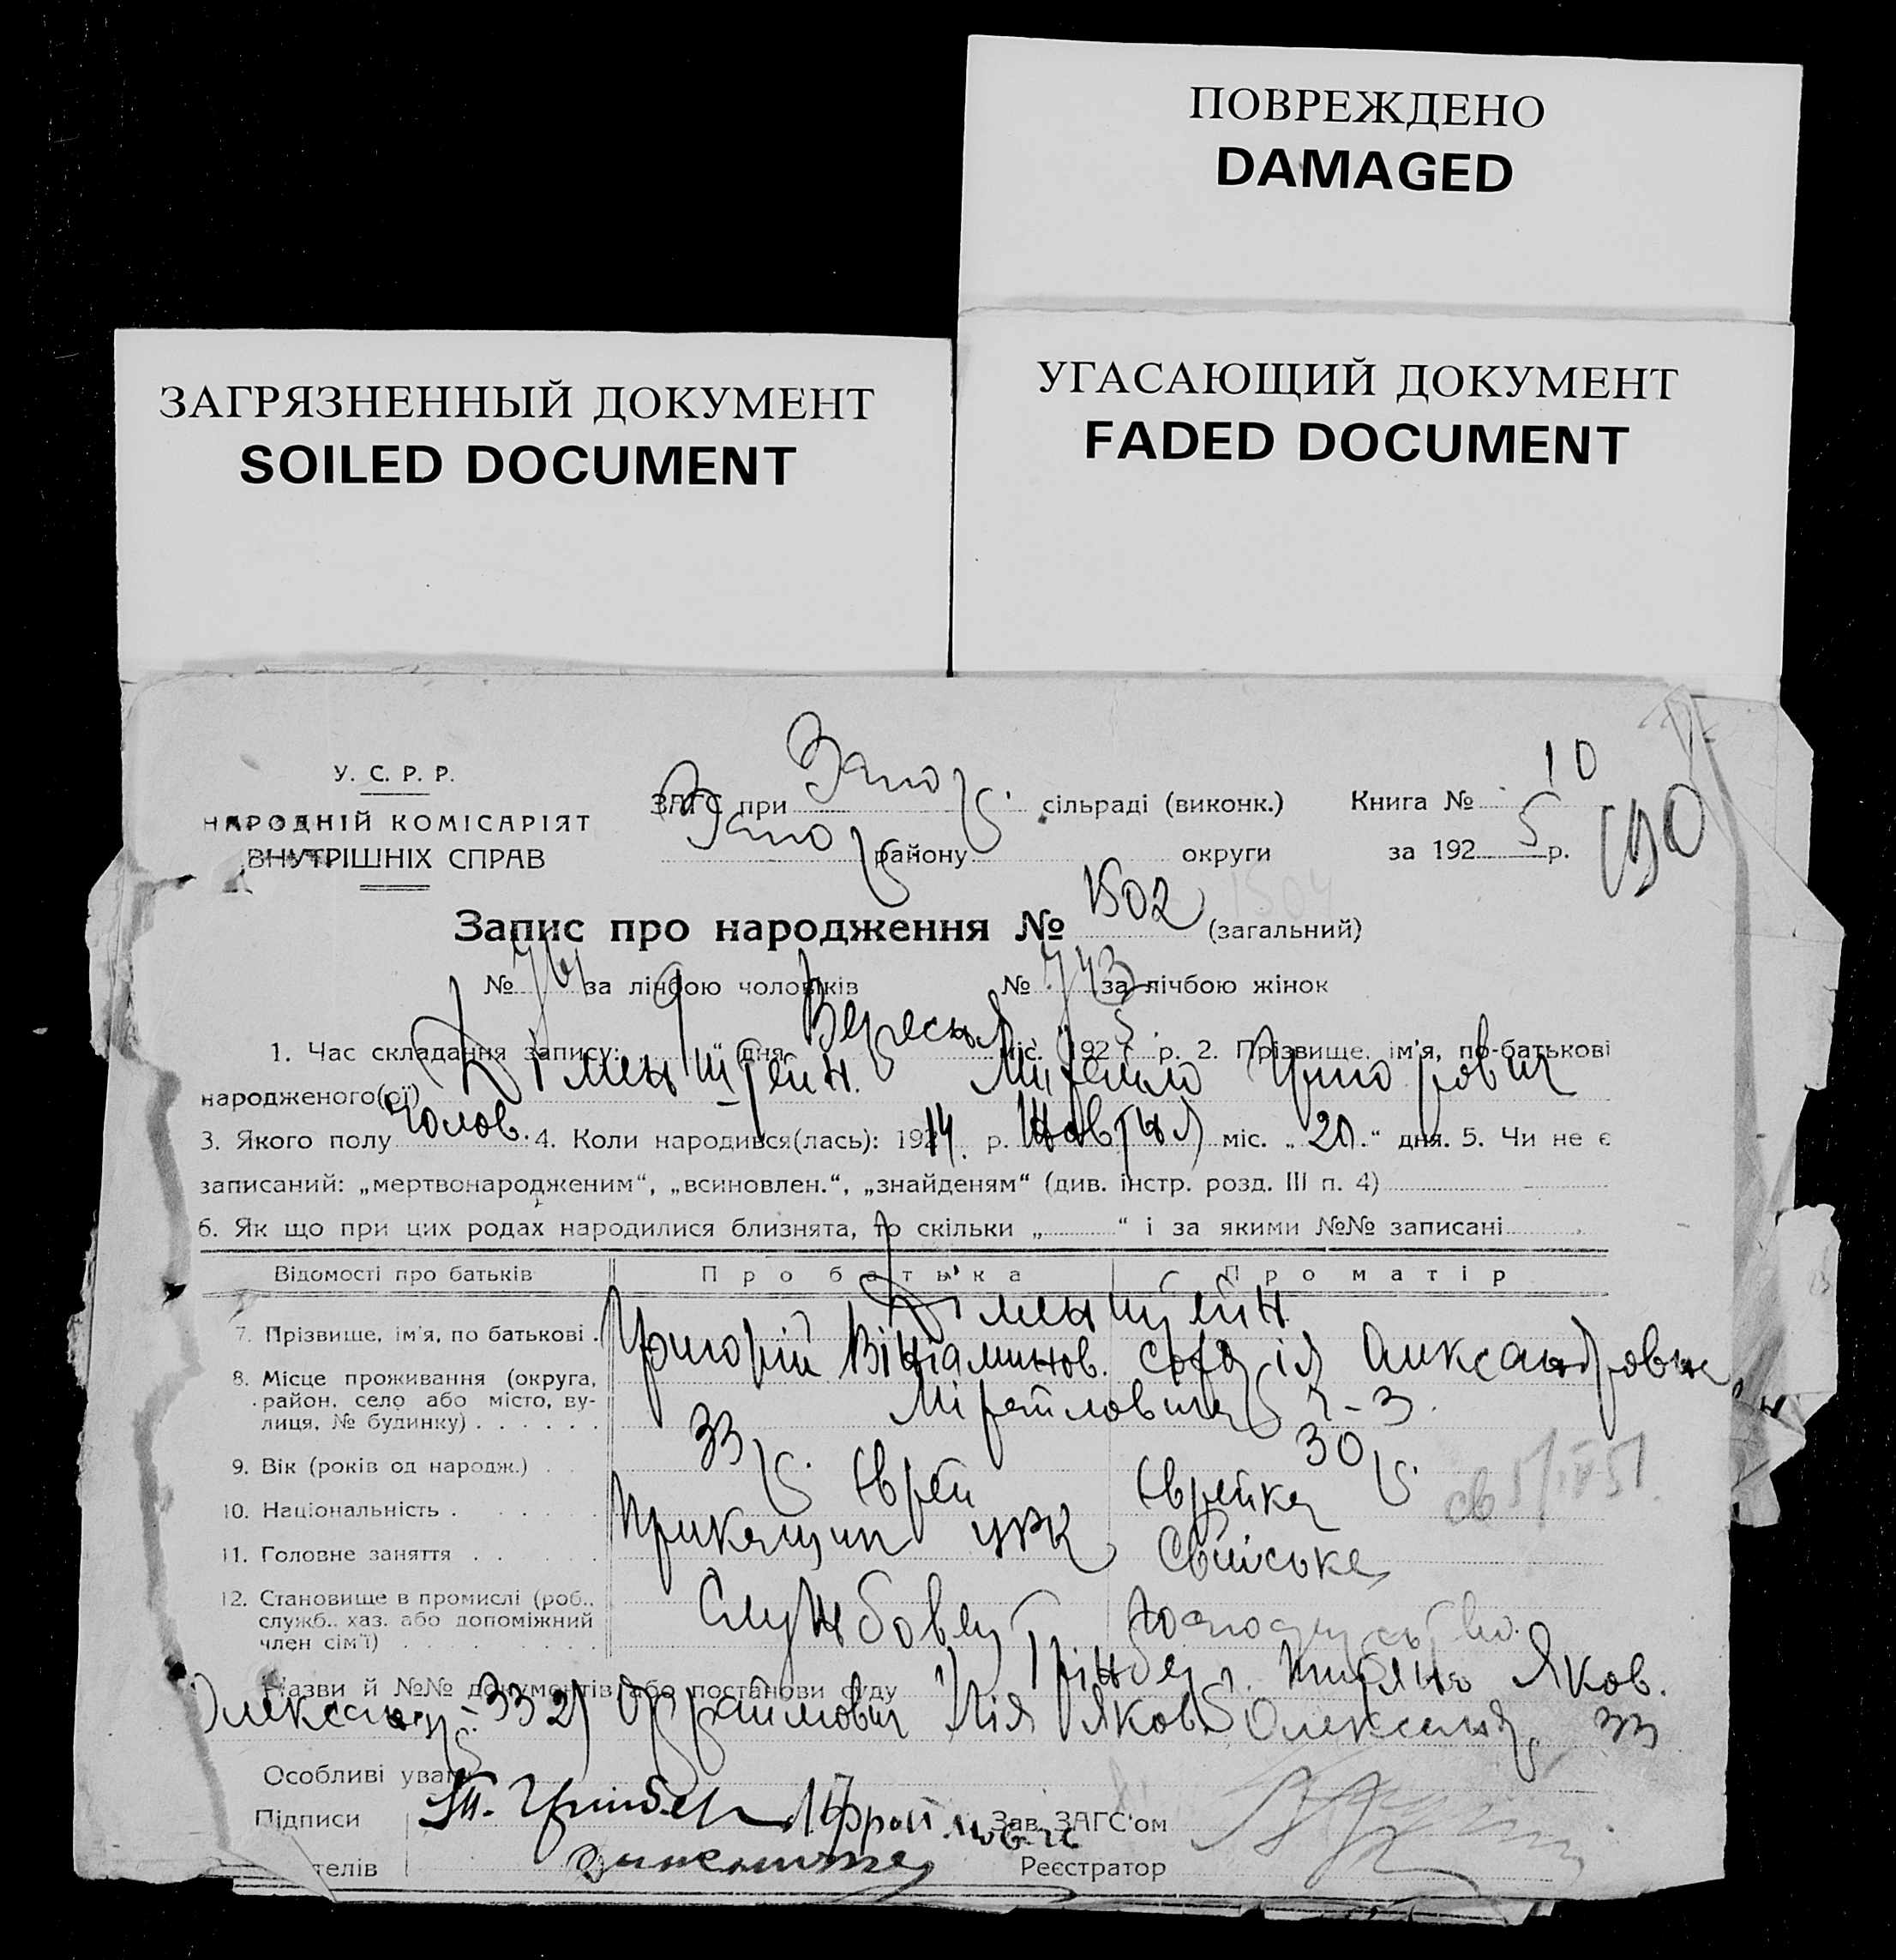 ПОВРЕЖДЕНО
DAMAGED
ЗАГРЯЗНЕННЫЙ ДОКУМЕНТ
SOILED DOCUMENT
УГАСАЮЩИЙ ДОКУМЕНТ
FADED DOCUMENT
У. С. Р. Р.
НАРОДНІЙ КОМІСАРІЯТ
ВНУТРІШНІХ СПРАВ
ЗАГС при Запор. сільраді (виконк.) Книга № 10
Запор району округи за 1925 р.
Запис про народження № 1502 (загальний)
1504
№ за лічбою чоловіків № 743 за лічбою жінок
1. Час складання запису: „9“ дня Вересня міс. 1925 р. 2. Прізвище, ім'я, по-батькові
народженого(ої) Діменштейн Михайло Григорович
3. Якого полу Чолов. 4. Коли народився(лась): 1914 р. Жовтня міс. „20“ дня. 5. Чи не є
записаний: „мертвонародженим“, „всиновлен.“, „знайденям“ (див. інстр. розд. III п. 4)
6. Як що при цих родах народилися близнята, то скільки „ “ і за якими №№ записані
Відомості про батьків Про батька Про матір
Діменштейн
7. Прізвище, ім'я, по батькові Григорій Веніамінов. Софія Александровна
8. Місце проживання (округа,
район, село або місто, ву-
лиця, № будинку) Міхайловська 2-3.
9. Вік (років од народж.) 33 р. 30 р.
10. Національність Єврей Єврейка
11. Головне заняття Прикащик ЦРК Свійське
12. Становище в промислі (роб.,
служб., хаз. або допоміжний
член сім'ї) Службовець господарство.
Назви й №№ документів або постанови суду Грінберг Яков.
Олександр. 33 2) Ефраімович Ілія Яков Олександр. 33
Особливі уваги
Підписи Грінберг Ефраимович Зав. ЗАГС'ом
телів Реєстратор